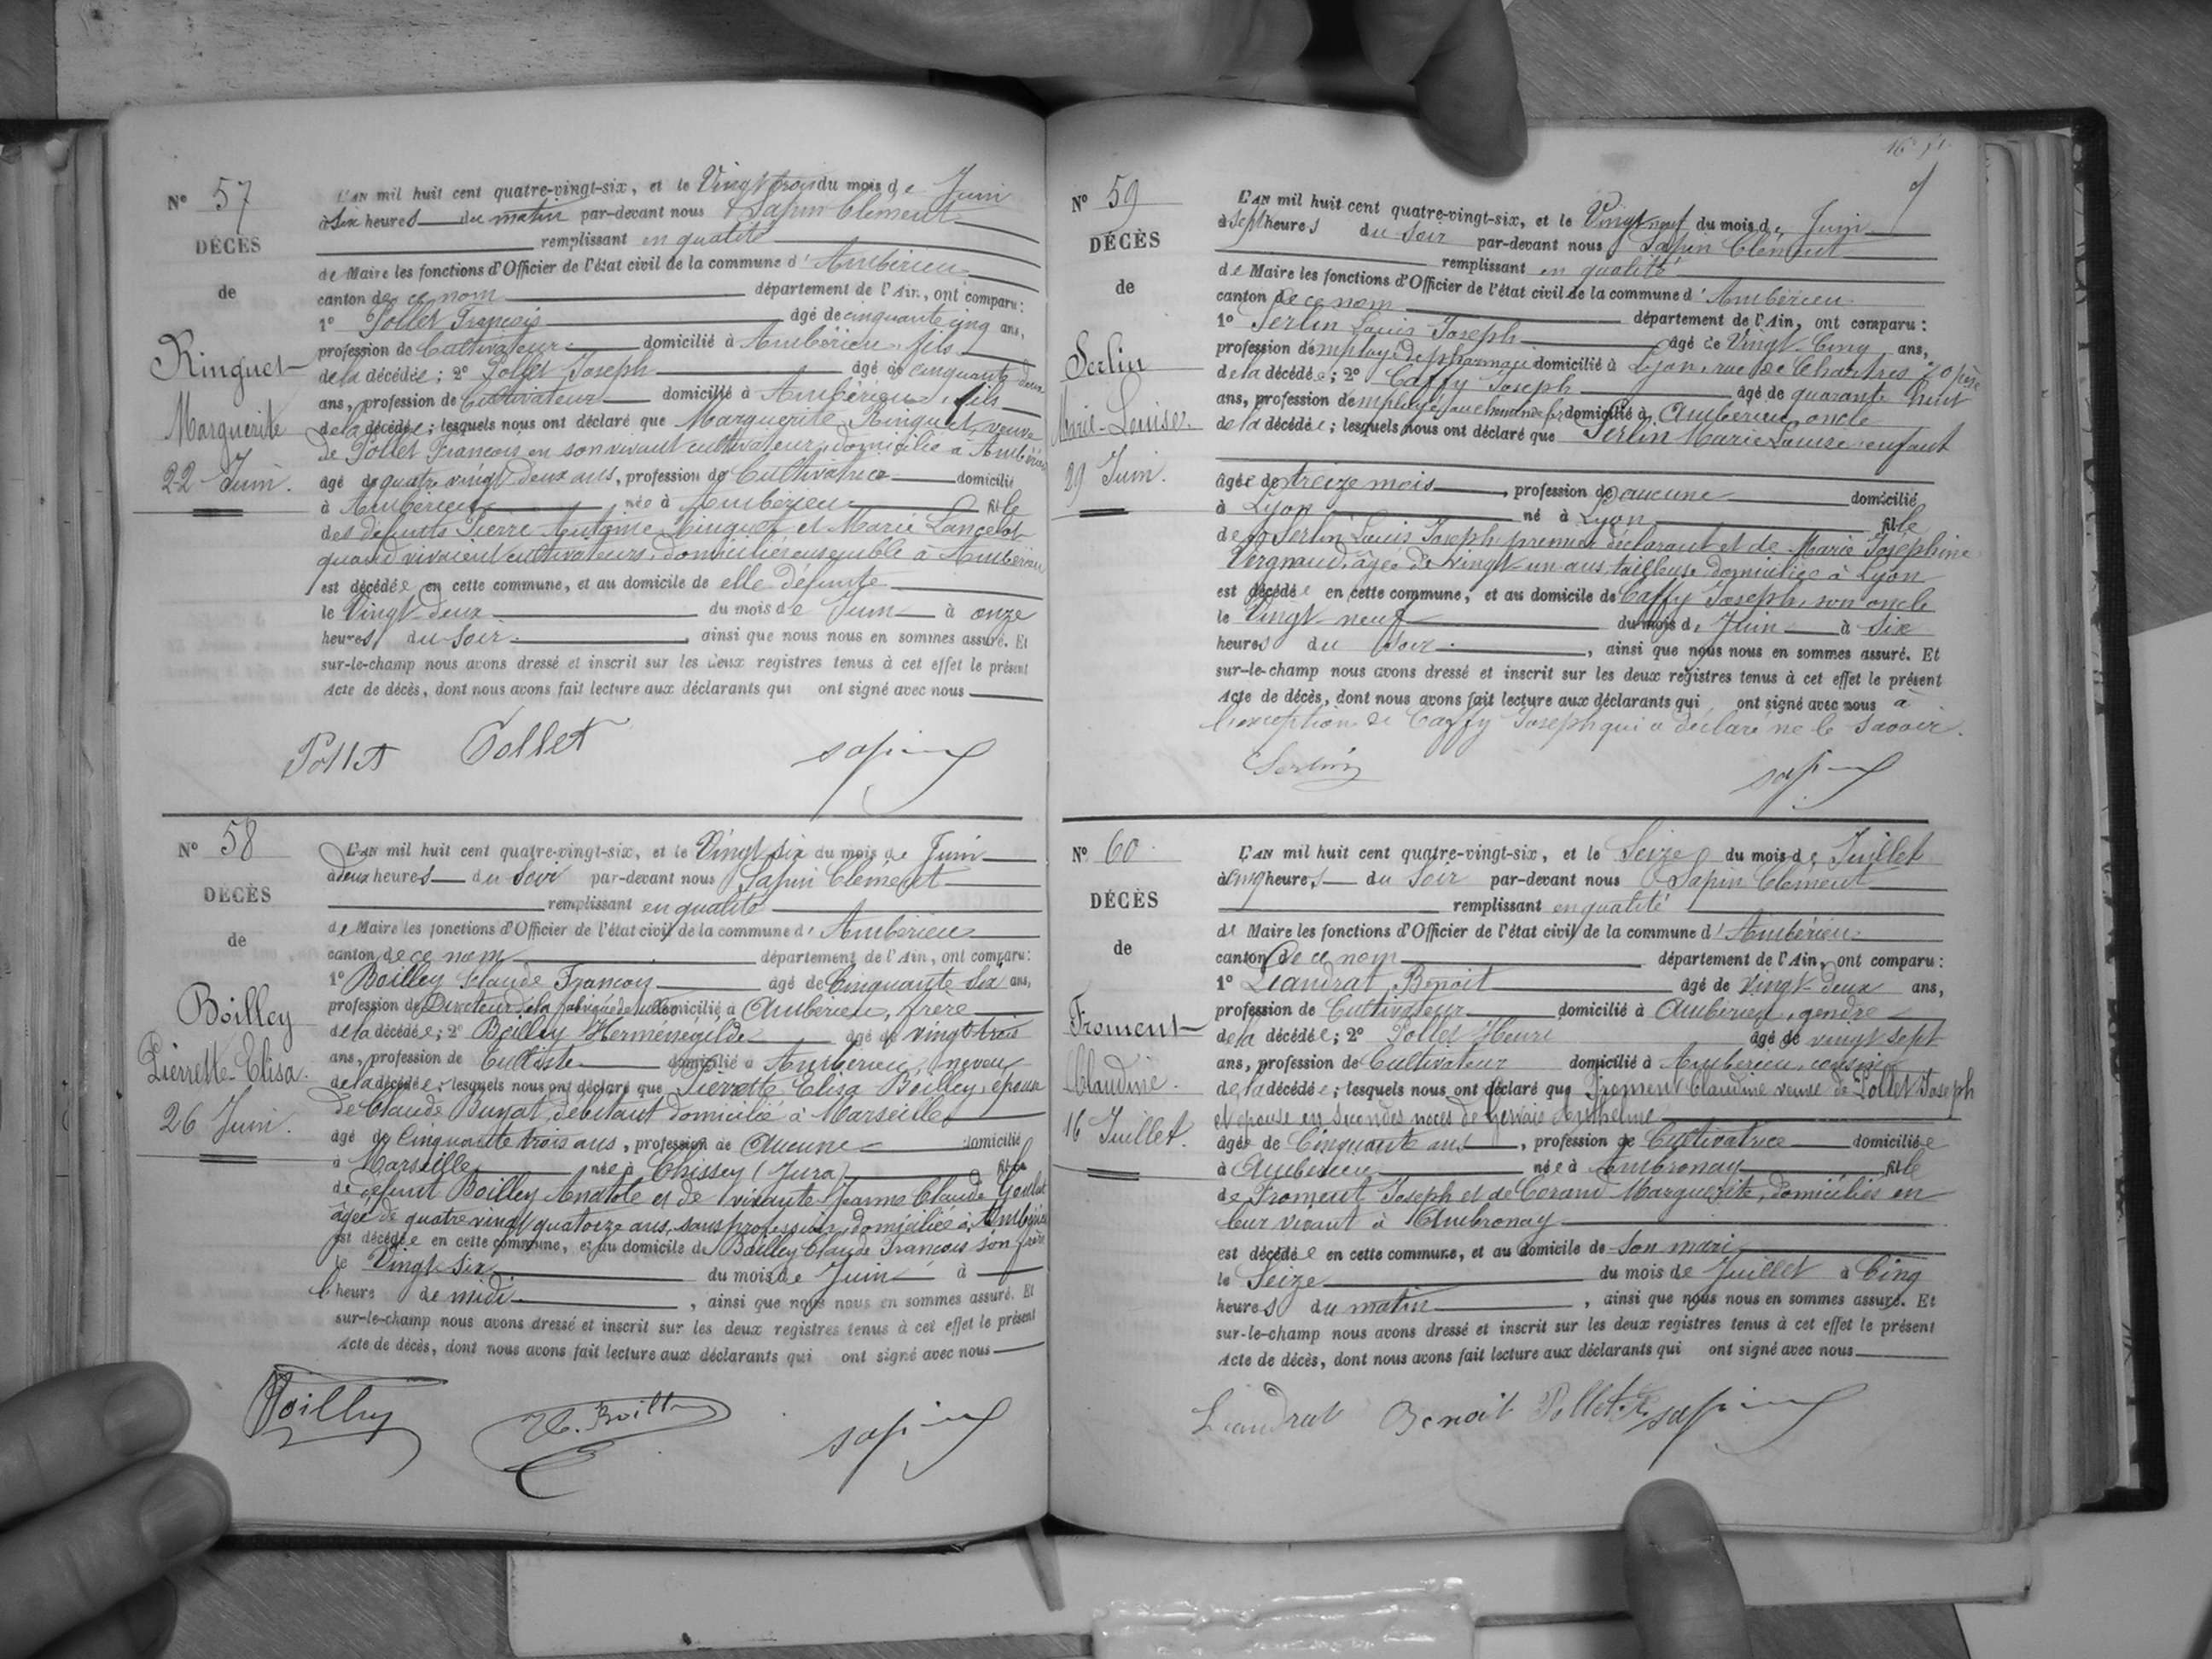 N° 57
DÉCÈS
de
Ringuet
Marguerite
22 Juin.
L'AN mil huit cent quatre-vingt-six, et le Vingt trois du mois de Juin
à six heures du matin par-devant nous Sapin Clément
remplissant en qualité
de Maire les fonctions d'Officier de l'état civil de la commune d'Ambérieu
canton de ce nom département de l'Ain, ont comparu:
1° Pollet François âgé de cinquante cinq ans,
profession de Cultivateur domicilié à Ambérieu, fils
de la décédée; 2° Pollet Joseph âgé de cinquante deux
ans, profession de Cultivateur domicilié à Ambérieu, fils
de la décédée; lesquels nous ont déclaré que Marguerite Ringuet, veuve
de Pollet François en son vivant cultivateur, domicilié à Ambérieu
âgé de quatre vingt deux ans, profession de Cultivatrice domicilié
à Ambérieu née à Ambérieu fille
des défunts Pierre Antoine Ringuet et Marie Lancelot
quand vivaient cultivateurs, domiciliés ensemble à Ambérieu
est décédée en cette commune, et au domicile de elle défunte
le Vingt deux du mois de Juin à onze
heures du soir, ainsi que nous nous en sommes assuré. Et
sur-le-champ nous avons dressé et inscrit sur les deux registres tenus à cet effet le présent
Acte de décès, dont nous avons fait lecture aux déclarants qui ont signé avec nous
Pollet Pollet Sapin
N° 58
DÉCÈS
de
Boilley
Pierrette-Elisa.
26 Juin.
L'AN mil huit cent quatre-vingt-six, et le Vingt six du mois de Juin
à deux heures du soir par-devant nous Sapin Clément
remplissant en qualité
de Maire les fonctions d'Officier de l'état civil de la commune d'Ambérieu
canton de ce nom département de l'Ain, ont comparu:
1° Boilley Claude François âgé de Cinquante six ans,
profession de Directeur de la fabrique de tulles domicilié à Ambérieu, frère
de la décédée; 2° Boilley Herménégilde âgé de vingt trois
ans, profession de Tulliste domicilié à Ambérieu, neveu
de la décédée; lesquels nous ont déclaré que Pierrette Elisa Boilley, épouse
de Claude Bunat, débitant domicilié à Marseille
âgé de Cinquante trois ans, profession de Aucune domicilié
à Marseille née à Chissey (Jura) fille
de défunt Boilley Anatole et de vivante Jeanne Claude
âgée de quatre vingt quatorze ans, sans profession, domiciliée à Ambérieu
est décédée en cette commune, et au domicile de Boilley Claude François son frère
le Vingt six du mois de Juin à
l'heure de midi, ainsi que nous nous en sommes assuré. Et
sur-le-champ nous avons dressé et inscrit sur les deux registres tenus à cet effet le présent
Acte de décès, dont nous avons fait lecture aux déclarants qui ont signé avec nous
Boilley H. Boilley Sapin
16
N° 59
DÉCÈS
de
Serlin
Marie-Louise.
29 Juin.
L'AN mil huit cent quatre-vingt-six, et le Vingt neuf du mois de Juin
à sept heures du soir par-devant nous Sapin Clément
remplissant en qualité
de Maire les fonctions d'Officier de l'état civil de la commune d'Ambérieu
canton de ce nom département de l'Ain, ont comparu:
1° Serlin Louis Joseph âgé de Vingt Cinq ans,
profession d'employé de pharmacie domicilié à Lyon, rue de Chartres, 20 père
de la décédée; 2° Caffy Joseph âgé de quarante huit
ans, profession d'employé au chemin de fer domicilié à Ambérieu, oncle
de la décédée; lesquels nous ont déclaré que Serlin Marie Louise, enfant
âgée de treize mois, profession de aucune domicilié
à Lyon né à Lyon fille
de Serlin Louis Joseph premier déclarant et de Marie Joséphine
Vergnaud, âgée de vingt un ans, tailleuse domiciliée à Lyon
est décédée en cette commune, et au domicile de Caffy Joseph, son oncle
le Vingt neuf du mois de Juin à six
heures du soir, ainsi que nous nous en sommes assuré. Et
sur-le-champ nous avons dressé et inscrit sur les deux registres tenus à cet effet le présent
Acte de décès, dont nous avons fait lecture aux déclarants qui ont signé avec nous à
l'exception de Caffy Joseph qui a déclaré ne le savoir.
Serlin Sapin
N° 60
DÉCÈS
de
Froment
Claudine.
16 Juillet.
L'AN mil huit cent quatre-vingt-six, et le Seize du mois de Juillet
à cinq heures du soir par-devant nous Sapin Clément
remplissant en qualité
de Maire les fonctions d'Officier de l'état civil de la commune d'Ambérieu
canton de ce nom département de l'Ain, ont comparu:
1° Léandrat Benoit âgé de vingt deux ans,
profession de Cultivateur domicilié à Ambérieu, gendre
de la décédée; 2° Pollet Henri âgé de vingt sept
ans, profession de Cultivateur domicilié à Ambérieu, cousin
de la décédée; lesquels nous ont déclaré que Froment Claudine veuve de Pollet Joseph
et épouse en secondes noces de Gervais Anthelme
âgée de Cinquante ans, profession de Cultivatrice domiciliée
à Ambérieu née à Ambronay fille
de Froment Joseph et de Cerand Marguerite, domiciliés en
leur vivant à Ambronay
est décédée en cette commune, et au domicile de son mari
le Seize du mois de Juillet à Cinq
heures du matin, ainsi que nous nous en sommes assuré. Et
sur-le-champ nous avons dressé et inscrit sur les deux registres tenus à cet effet le présent
Acte de décès, dont nous avons fait lecture aux déclarants qui ont signé avec nous
Léandrat Benoit Pollet H. Sapin